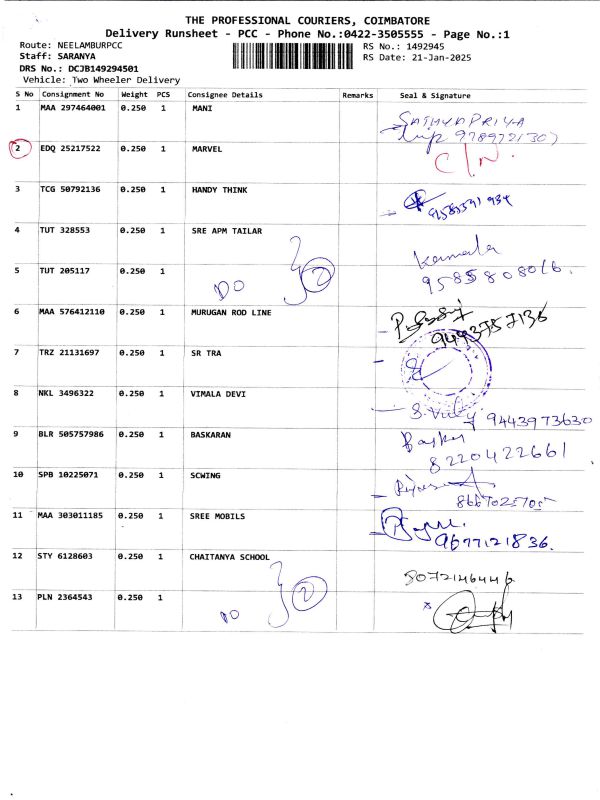 THE PROFESSIONAL COURIERS, COIMBATORE
Delivery Runsheet - PCC - Phone No.:0422-3505555 - Page No.:1
Route: NEELAMBURPCC RS No.: 1492945
Staff: SARANYA RS Date: 21-Jan-2025
DRS No.: DCJB149294501
Vehicle: Two Wheeler Delivery
S No Consignment No Weight PCS Consignee Details Remarks Seal & Signature
1 MAA 297464001 0.250 1 MANI
SATHYAPRIYA
2 EDQ 25217522 0.250 1 MARVEL C/N.
3 TCG 50792136 0.250 1 HANDY THINK
4 TUT 328553 0.250 1 SRE APM TAILAR
Kamala
9585808016.
5 TUT 205117 0.250 1 DO 2
6 MAA 576412110 0.250 1 MURUGAN ROD LINE
7 TRZ 21131697 0.250 1 SR TRA
8 NKL 3496322 0.250 1 VIMALA DEVI
9443973630
9 BLR 505757986 0.250 1 BASKARAN
8220422661
10 SPB 10225071 0.250 1 SCWING
11 MAA 303011185 0.250 1 SREE MOBILS
9677121836.
12 STY 6128603 0.250 1 CHAITANYA SCHOOL
13 PLN 2364543 0.250 1 DO 2